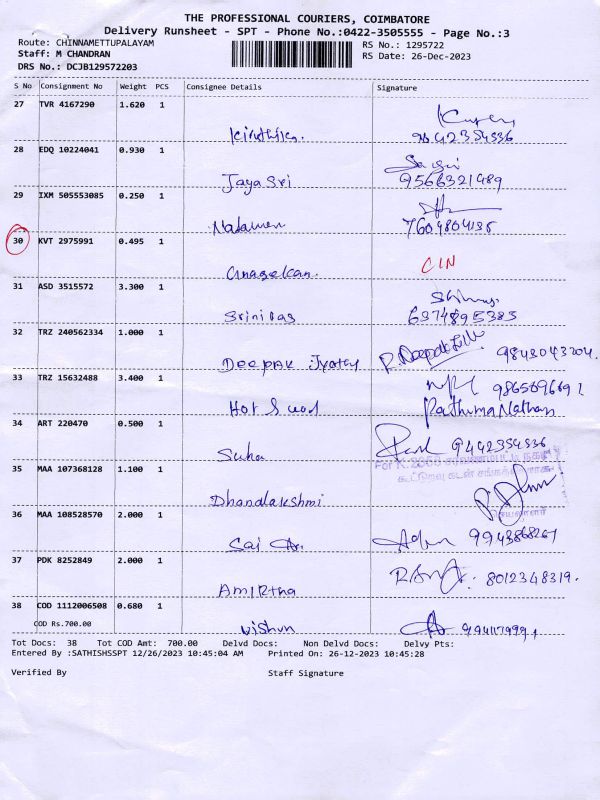 THE PROFESSIONAL COURIERS, COIMBATORE
Delivery Runsheet - SPT - Phone No.:0422-3505555 - Page No.:3
Route: CHINNAMETTUPALAYAM RS No.: 1295722
Staff: M CHANDRAN RS Date: 26-Dec-2023
DRS No.: DCJB129572203
S No Consignment No Weight PCS Consignee Details Signature
27 TVR 4167290 1.620 1
Kiruthika
28 EDQ 10224041 0.930 1
Jaya Sri 9566321489
29 IXM 505553085 0.250 1
7604804135
30 KVT 2975991 0.495 1
CIN
31 ASD 3515572 3.300 1
Srinivas 6374895383
32 TRZ 240562334 1.000 1
Deepak Jyothy 9843043204
33 TRZ 15632488 3.400 1
Hot & wod Rathima Nathan
34 ART 220470 0.500 1
Suha 9442354536
35 MAA 107368128 1.100 1
Dhandlakshmi
36 MAA 108528570 2.000 1
Sai 9943868267
37 PDK 8252849 2.000 1
Amirtha 8012348319.
38 COD 1112006508 0.680 1
COD Rs.700.00
Vishun
Tot Docs: 38 Tot COD Amt: 700.00 Delvd Docs: Non Delvd Docs: Delvy Pts:
Entered By :SATHISHSSPT 12/26/2023 10:45:04 AM Printed On: 26-12-2023 10:45:28
Verified By Staff Signature